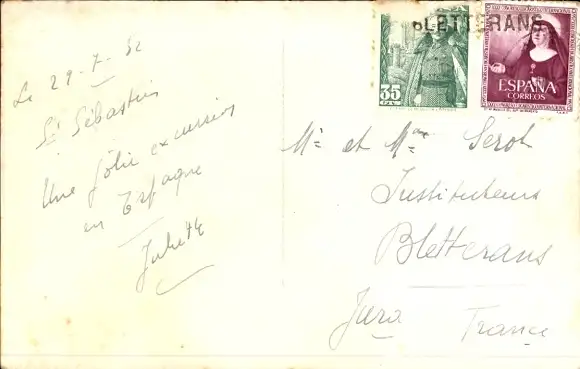 Le 29-7-52
St Sébastien
Une jolie excursion
en Espagne
BLETTERANS
35
CTS.
ESPAÑA
CORREOS
Mr et Mme Serot
Instituteurs
Bletterans
Jura France